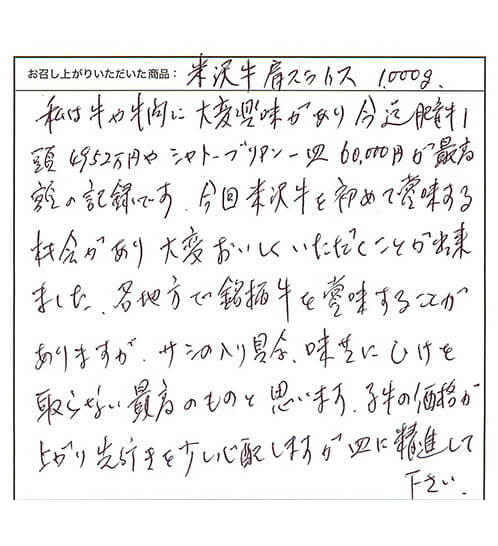 お召し上がりいただいた商品： 米沢牛肩スライス 1,000g.
私は牛や牛肉に大変興味があり今迄肥育牛1
頭4952万円やシャトーブリアン一皿60,000円が最高
額の記録です、今回米沢牛を初めて賞味する
機会があり大変おいしくいただくことが出来
ました、各地方で銘柄牛を賞味することが
ありますが、サシの入り具合、味共にひけを
取らない最高のものと思います、子牛の価格が
上がり先行きを少し心配しますが更に精進して
下さい、